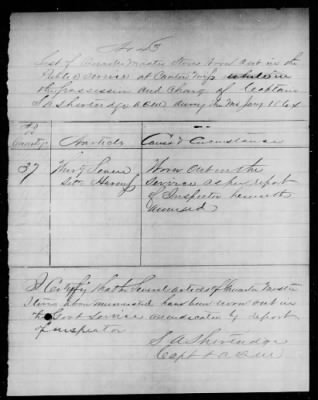 No 43
List of Quarter Master Stores Worn out in the
Public Service at Canton Miss while in
the possession and charge of Captain
S A during the 1864
No
Quantity Articles Cause & Circumstance
37 Worn Out in the
Sets Harness Service as per report
of Inspector herewith
annexed
I Certify that the Several articles of Quarter Master
Stores above enumerated have been worn out in
the Govt Service as indicated by report
of inspector
S A
Capt & AQM